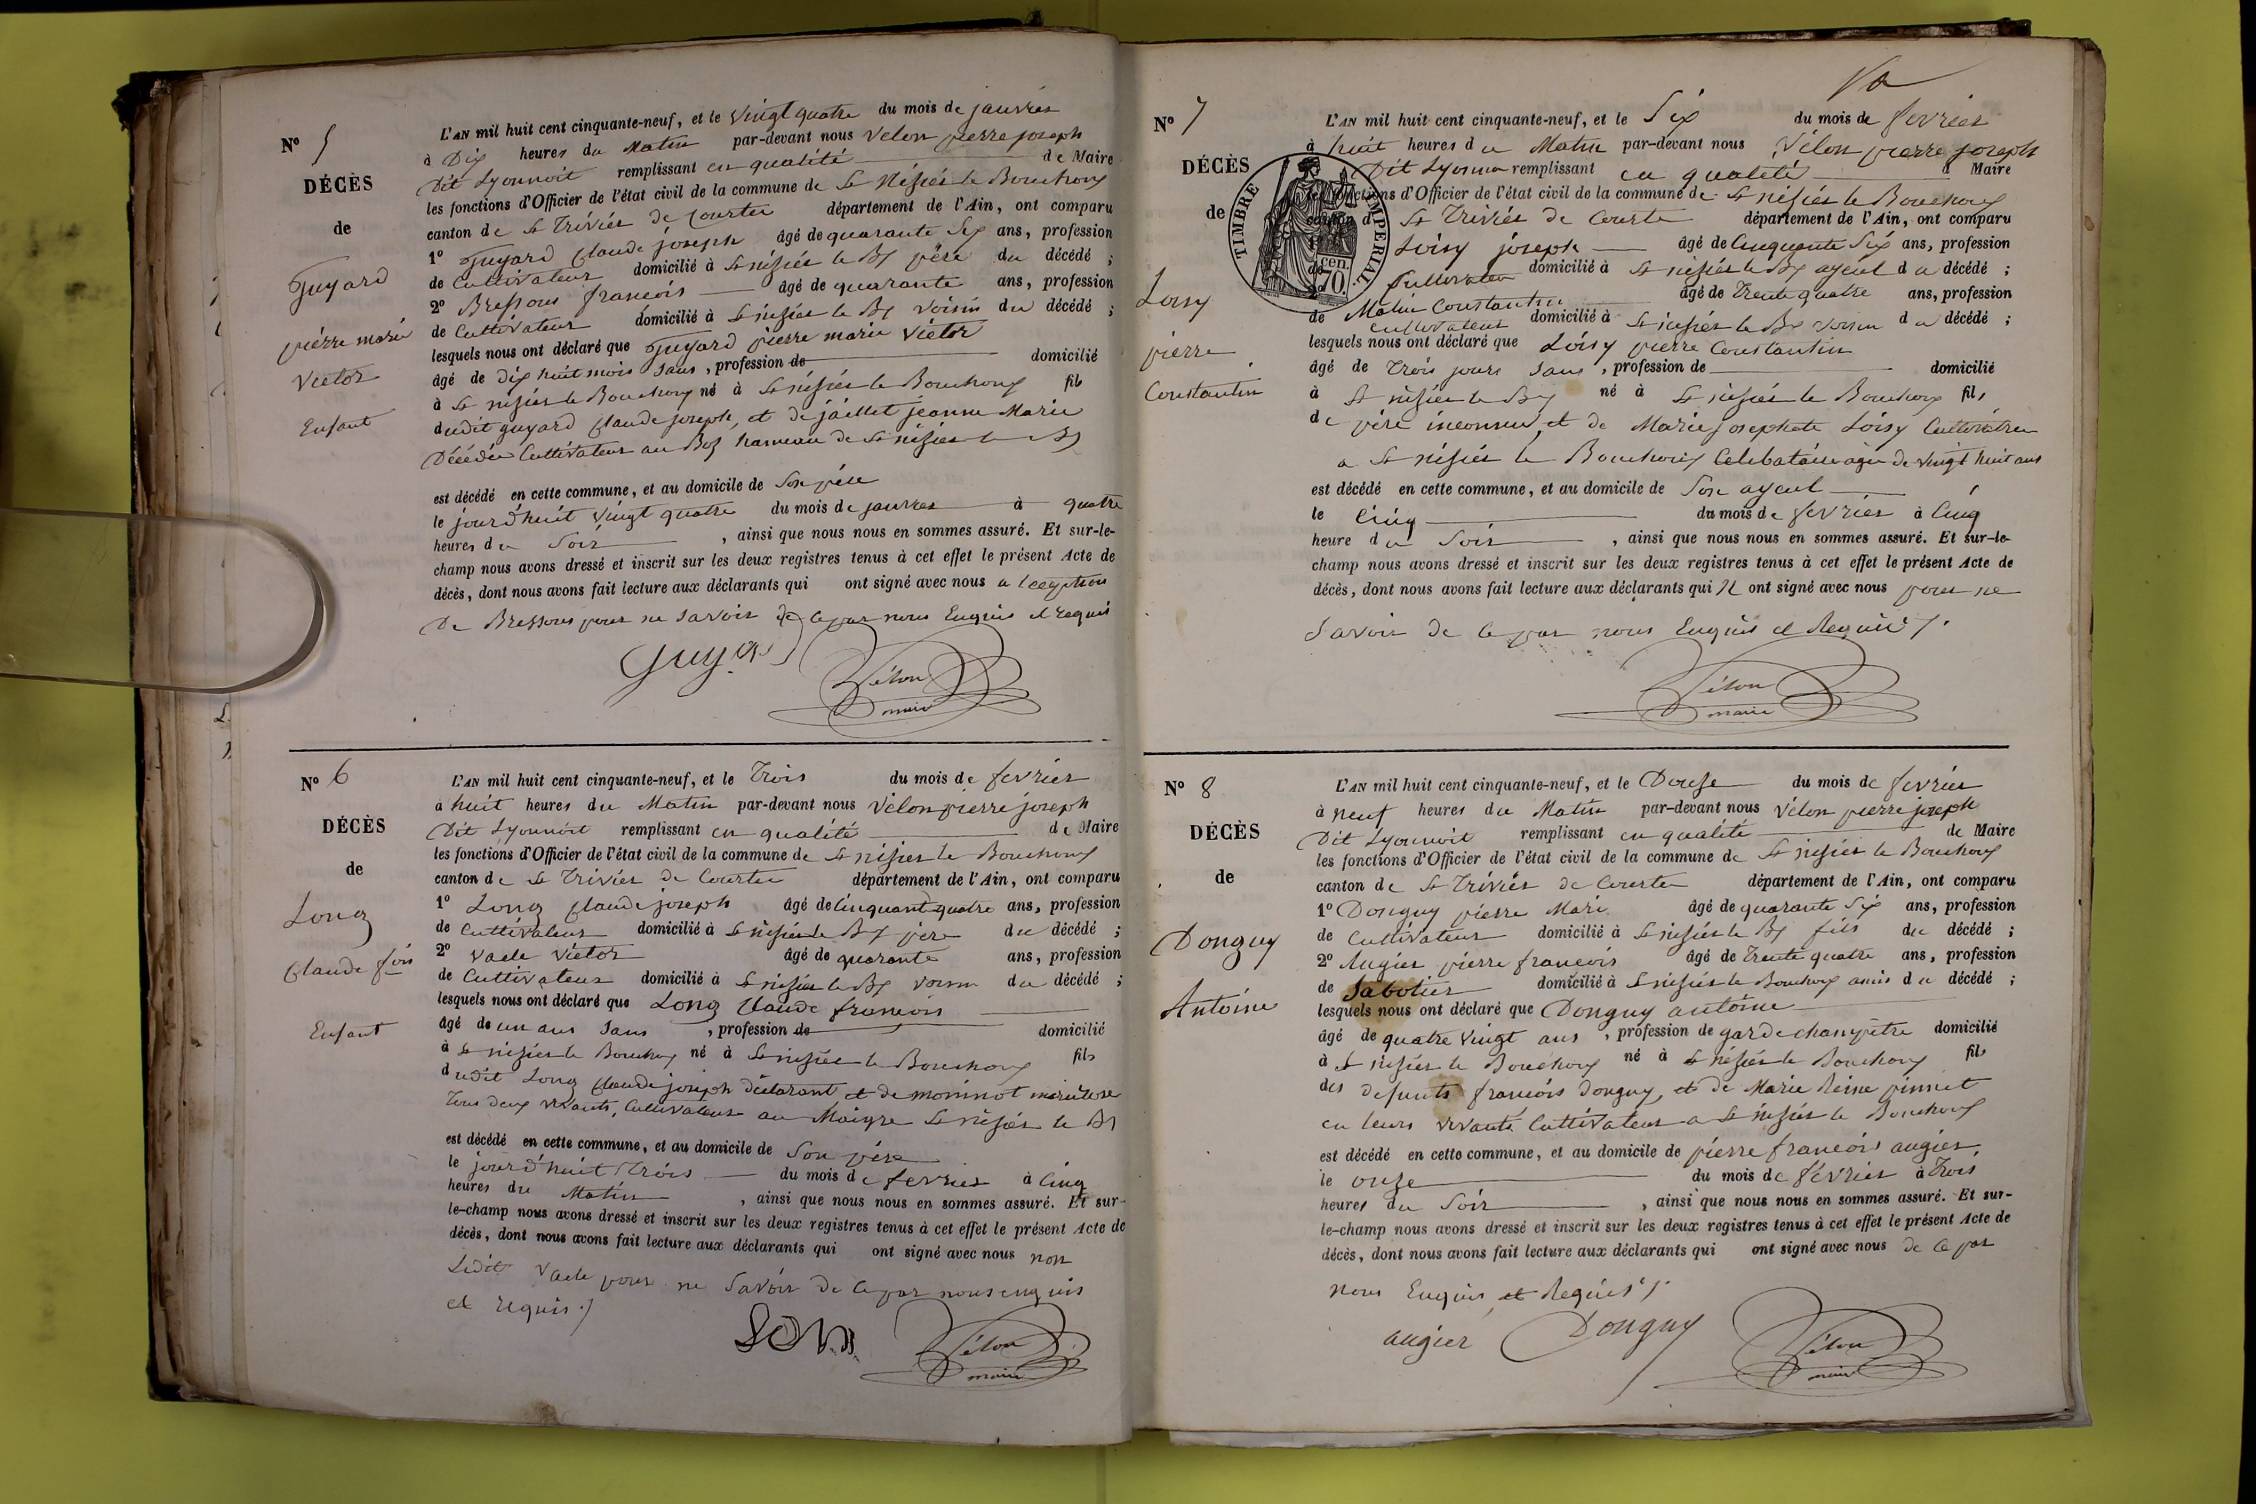 N° 5
DÉCÈS
de
Guyard
pierre marie
Victor
Enfant
L'AN mil huit cent cinquante-neuf, et le vingt quatre du mois de janvier
à Dix heures du Matin par-devant nous Velon pierre joseph
Dit Lyonnoit remplissant en qualité de Maire
les fonctions d'Officier de l'état civil de la commune de St Nisiér le Bouchoux
canton de St Triviér de Courtes département de l'Ain, ont comparu
1° Guyard Claude joseph âgé de quarante Six ans, profession
de Cultivateur domicilié à St nisiér le Bx père du décédé ;
2° Bressoux francois âgé de quarante ans, profession
de Cultivateur domicilié à St nisiér le Bx voisin du décédé ;
lesquels nous ont déclaré que Guyard pierre marie Victor
âgé de dix huit mois Sans , profession de domicilié
à St nisiér le Bouchoux né à St nisiér le Bouchoux fils
dudit guyard Claude joseph, et de jaillet jeanne Marie
Décédée Cultivateur au hameau de St nisiér le Bx
est décédé en cette commune, et au domicile de Son père
le jourd'huit vingt quatre du mois de janvier à quatre
heures du Soir , ainsi que nous nous en sommes assuré. Et sur-le-
champ nous avons dressé et inscrit sur les deux registres tenus à cet effet le présent Acte de
décès, dont nous avons fait lecture aux déclarants qui ont signé avec nous a lexeption
De Bressoux pour ne Savoir de ce par nous Enquis et requis
Guyard Vélon
maire
N° 6
DÉCÈS
de
Long
Claude fois
Enfant
L'AN mil huit cent cinquante-neuf, et le Trois du mois de fevrier
à huit heures du Matin par-devant nous Vélon pierre joseph
Dit Lyonnoit remplissant en qualité de Maire
les fonctions d'Officier de l'état civil de la commune de St nisier le Bouchoux
canton de St Triviér de Courtes département de l'Ain, ont comparu
1° Long Claude joseph âgé de Cinquant quatre ans, profession
de Cultivateur domicilié à St nisiér le Bx père du décédé ;
2° Vacle Victor âgé de quarante ans, profession
de Cultivateur domicilié à St nisiér le Bx voisin du décédé ;
lesquels nous ont déclaré que Long Claude francois
âgé de un ans Sans , profession de domicilié
à St nisiér le Bouchoux né à St nisiér le Bouchoux fils
dudit Long Claude joseph déclarant et de moninot
Tous deux vivants, Cultivateur au Maigre St nisiér le Bx
est décédé en cette commune, et au domicile de Son père
le jourd'huit Trois du mois de fevrier à Cinq
heures du Matin , ainsi que nous nous en sommes assuré. Et sur-
le-champ nous avons dressé et inscrit sur les deux registres tenus à cet effet le présent Acte de
décès, dont nous avons fait lecture aux déclarants qui ont signé avec nous non
Ledit Vacle pour ne Savoir de ce par nous enquis
et requis ./
Vélon
maire
N° 7
DÉCÈS
de
Loisy
pierre
Constantin
TIMBRE IMPERIAL
cen.
70.
L'AN mil huit cent cinquante-neuf, et le Six du mois de fevrier
à huit heures du Matin par-devant nous Vélon pierre joseph
Dit Lyonnoi remplissant en qualité d Maire
les fonctions d'Officier de l'état civil de la commune de St nisiér le Bouchoux
canton d St Triviér de Courte département de l'Ain, ont comparu
Loisy joseph âgé de Cinquante Six ans, profession
de Cultivateur domicilié à St nisiér le Bx ayeul du décédé ;
Matin Constantin âgé de Trente quatre ans, profession
de cultivateur domicilié à St nisiér le Bx voisin du décédé ;
lesquels nous ont déclaré que Loisy pierre Constantin
âgé de Trois jours Sans , profession de domicilié
à St nisiér le Bx né à St nisiér le Bouchoux fils
de père inconnu et de Marie josephete Loisy Cultivatrice
a St nisiér le Bouchoux Celibatáire agée de Vingt huit ans
est décédé en cette commune, et au domicile de Son ayeul
le Cinq du mois de fevrier à Cinq
heure du Soir , ainsi que nous nous en sommes assuré. Et sur-le-
champ nous avons dressé et inscrit sur les deux registres tenus à cet effet le présent Acte de
décès, dont nous avons fait lecture aux déclarants qui N ont signé avec nous pour ne
Savoir de ce par nous Enquis et Requis /.
Vélon
maire
N° 8
DÉCÈS
de
Donguy
Antoine
L'AN mil huit cent cinquante-neuf, et le Douze du mois de fevrier
à neuf heures du Matin par-devant nous Vélon pierre joseph
Dit Lyonnoit remplissant en qualité de Maire
les fonctions d'Officier de l'état civil de la commune de St nisiér le Bouchoux
canton de St Triviér de Courtes département de l'Ain, ont comparu
1° Donguy pierre Mari âgé de quarante Six ans, profession
de Cultivateur domicilié à St nisiér le Bx fils du décédé ;
2° Augier pierre francois âgé de Trente quatre ans, profession
de Sabotier domicilié à St nisiér le Bouchoux amis du décédé ;
lesquels nous ont déclaré que Donguy antoine
âgé de quatre vingt ans , profession de garde champetre domicilié
à St nisiér le Bouchoux né à St nisiér le Bouchoux fils
des defunts francois Donguy, et de Marie Reine pinnet
en leurs vivants Cultivateur a St nisiér le Bouchoux
est décédé en cette commune, et au domicile de pierre francois augier,
le onze du mois de fevrier à Trois
heures du Soir , ainsi que nous nous en sommes assuré. Et sur-
le-champ nous avons dressé et inscrit sur les deux registres tenus à cet effet le présent Acte de
décès, dont nous avons fait lecture aux déclarants qui ont signé avec nous de ce par
nous Enquis et Requis /.
augier Donguy Vélon
maire